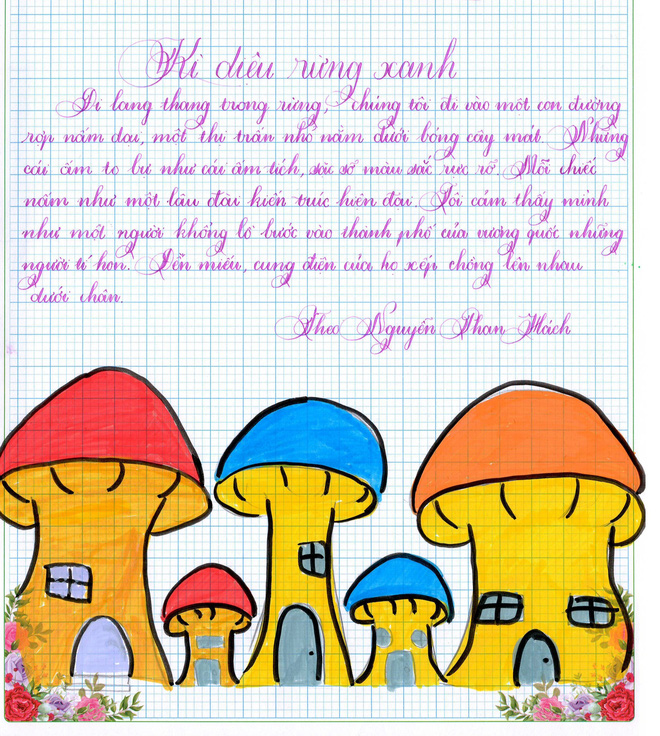 Kì diệu rừng xanh
Đi lang thang trong rừng, chúng tôi đi vào một con đường
rợp nấm dại, một thị trấn nhỏ nằm dưới bóng cây mát. Những
cái ấm to bự như cái ấm tích, sặc sỡ màu sắc rực rỡ. Mỗi chiếc
nấm như một lâu đài kiến trúc hiện đại. Tôi cảm thấy mình
như một người khổng lồ bước vào thành phố của vương quốc những
người tí hon. Đền miếu, cung điện của họ xếp chồng lên nhau
dưới chân.
Theo Nguyễn Phan Hách